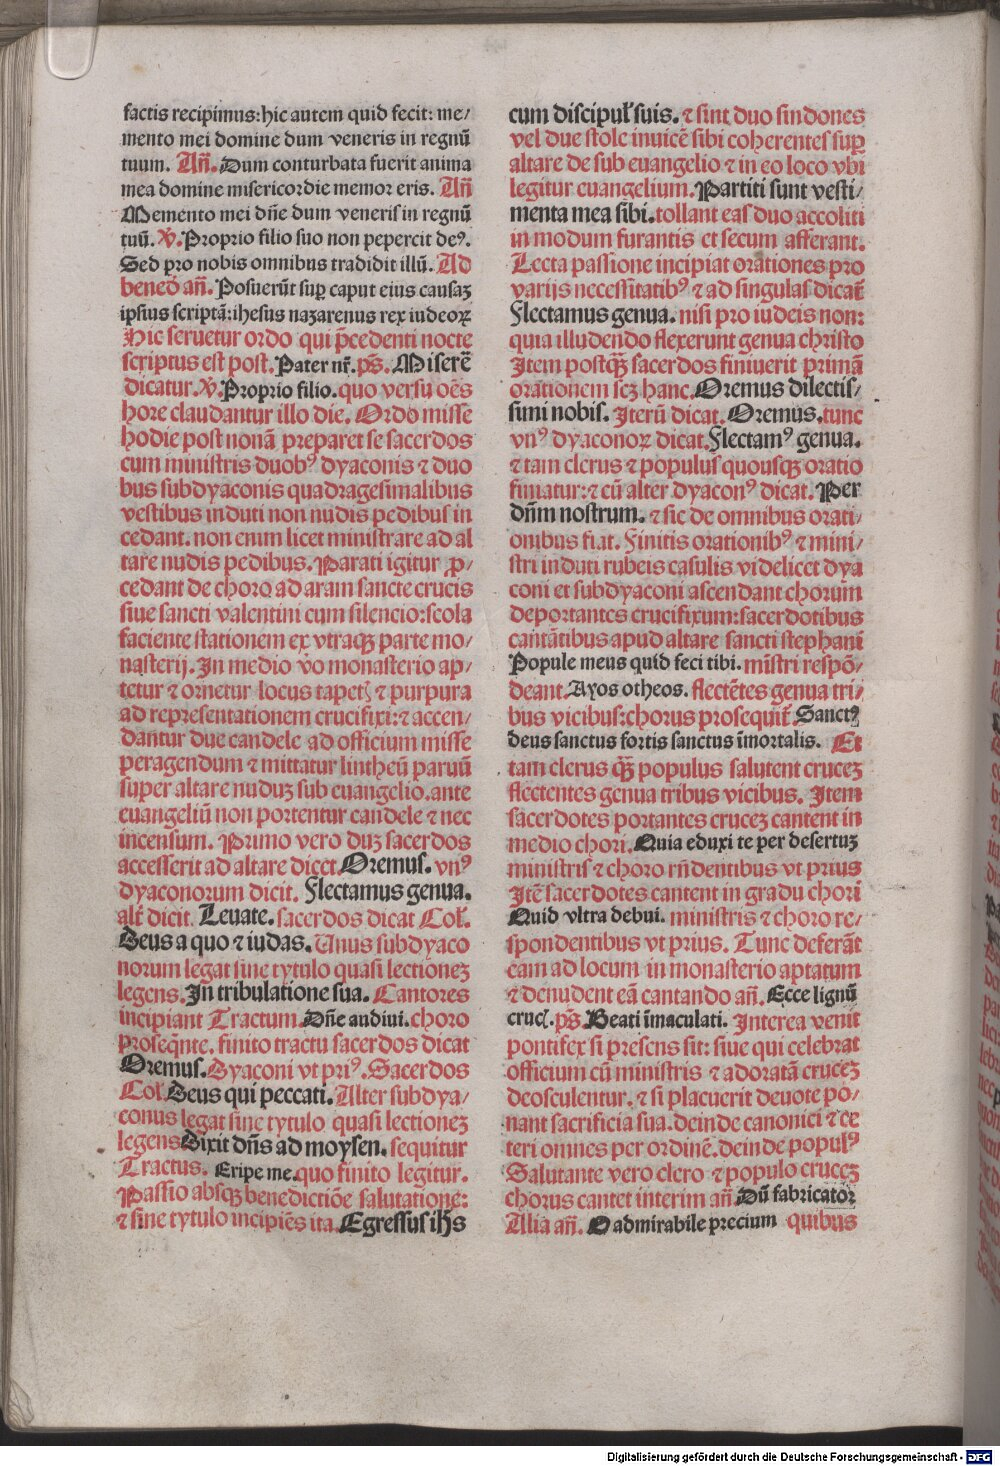 factis recipimus: hic autem quid fecit: me/
mento mei domine dum veneris in regnū
tuum. Añ. Dum conturbata fuerit anima
mea domine misericordie memor eris. Añ
Memento mei dñe dum veneris in regnū
tuū. V. Proprio filio suo non pepercit deꝰ.
Sed pro nobis omnibus tradidit illū. Ad
bened̄ añ. Posuerūt suꝑ caput eius causaꝫ
ipsius scriptā: ihesus nazarenus rex iudeoꝝ
Hic seruetur ordo qui p̄cedenti nocte
scriptus est post. Pater nr̄. pš. Miserē
dicatur. V. Proprio filio. quo versu oēs
hore claudantur illo die. Ordo misse
hodie post nonā preparet se sacerdos
cum ministris duobꝰ dyaconis ⁊ duo
bus subdyaconis quadragesimalibus
vestibus induti non nudis pedibus in
cedant. non enim licet ministrare ad al
tare nudis pedibus. Parati igitur ꝓ/
cedant de choro ad aram sancte crucis
siue sancti valentini cum silencio: scola
faciente stationem ex vtraqꝫ parte mo/
nasterij. In medio v̄o monasterio ap/
tetur ⁊ ornetur locus tapetꝭ ⁊ purpura
ad representationem crucifixi: ⁊ accen/
dantur due candele ad officium misse
peragendum ⁊ mittatur lintheū paruū
super altare nuduꝫ sub euangelio. ante
euangeliū non portentur candele ⁊ nec
incensum. Primo vero duꝫ sacerdos
accesserit ad altare dicet Oremus. vnꝰ
dyaconorum dicit. Flectamus genua.
alt̄ dicit Leuate. sacerdos dicat Coll.
Deus a quo ⁊ iudas. Unus subdyaco
norum legat sine tytulo quasi lectioneꝫ
legens. In tribulatione sua. Cantores
incipiant Tractum. Dñe audiui. choro
proseqn̄te. finito tractu sacerdos dicat
Oremus. Dyaconi vt priꝰ. Sacerdos
Coll. Deus qui peccati. Alter subdya/
conus legat sine tytulo quasi lectioneꝫ
legens Dixit dñs ad moysen. sequitur
Tractus. Eripe me. quo finito legitur.
Passio absqꝫ benedictiōe salutatione:
⁊ sine tytulo incipiēs ita. Egressus ihs̄
cum discipul' suis. ⁊ sint duo sindones
vel due stole inuicē sibi coherentes suꝑ
altare de sub euangelio ⁊ in eo loco vbi
legitur euangelium. Partiti sunt vesti/
menta mea sibi. tollant eas duo accoliti
in modum furantis et secum afferant.
Lecta passione incipiat orationes pro
varijs necessitatibꝰ ⁊ ad singulas dicat̄
Flectamus genua. nisi pro iudeis non:
quia illudendo flexerunt genua christo
Item postqꝫ sacerdos finiuerit primā
orationem scꝫ hanc. Oremus dilectis/
simi nobis. Iterū dicat. Oremus. tunc
vnꝰ dyaconoꝝ dicat. Flectamꝰ genua.
⁊ tam clerus ⁊ populus quousqꝫ oratio
finiatur: ⁊ cū alter dyaconꝰ dicat. Per
dn̄m nostrum. ⁊ sic de omnibus orati/
onibus fiat. Finitis orationibꝰ ⁊ mini/
stri induti rubeis casulis videlicet dya
coni et subdyaconi ascendant chorum
deportantes crucifixum: sacerdotibus
cantātibus apud altare sancti stephani
Popule meus quid feci tibi. mīstri respō/
deant. Ayos otheos. flectētes genua tri/
bus vicibus: chorus prosequit̄. Sanctꝰ
deus sanctus fortis sanctus īmortalis. Et
tam clerus qꝫ populus salutent cruceꝫ
flectentes genua tribus vicibus. Item
sacerdotes portantes cruceꝫ cantent in
medio chori. Quia eduxi te per desertuꝫ
ministris ⁊ choro rn̄dentibus vt prius
Itē sacerdotes cantent in gradu chori
Quid vltra debui. ministris ⁊ choro re/
spondentibus vt prius. Tunc deferāt
eam ad locum in monasterio aptatum
⁊ denudent eā cantando añ. Ecce lignū
crucꝭ. pš. Beati īmaculati. Interea venit
pontifex si presens sit: siue qui celebrat
officium cū ministris ⁊ adoratā cruceꝫ
deosculentur. ⁊ si placuerit deuote po/
nant sacrificia sua. deinde canonici ⁊ ce
teri omnes per ordinē. deinde populꝰ
Salutante vero clero ⁊ populo cruceꝫ
chorus cantet interim añ Dū fabricator
Alia añ. O admirabile precium quibus
Digitalisierung gefördert durch die Deutsche Forschungsgemeinschaft - DFG